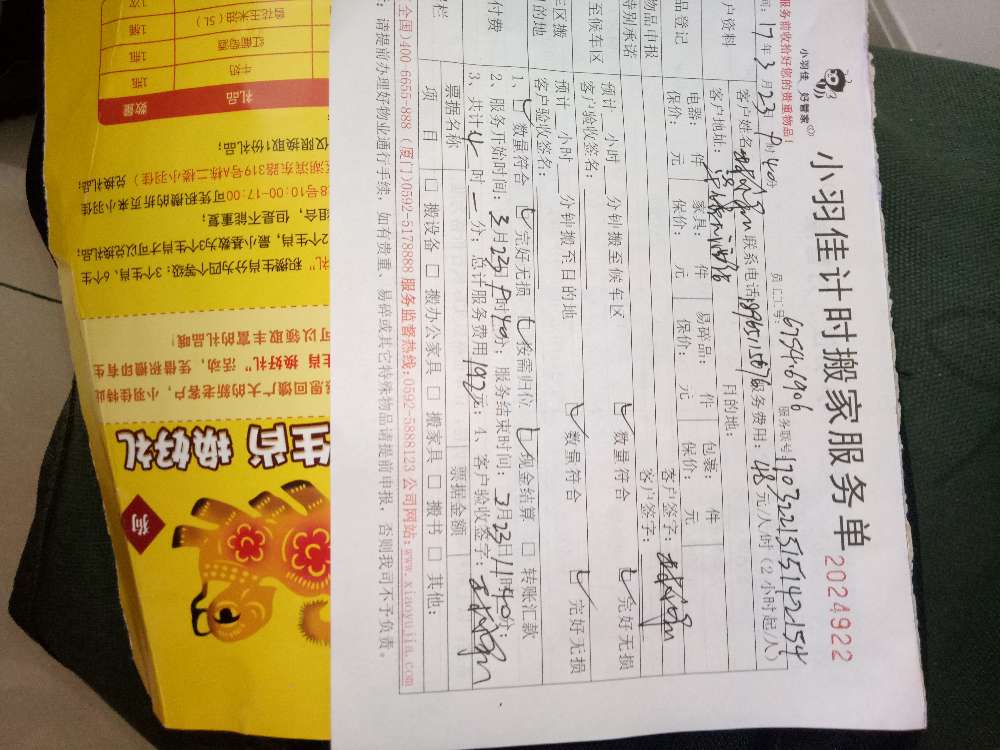 小羽佳 好管家
小羽佳计时搬家服务单
2024922
服务前收拾好您的贵重物品!
员工工号: 6754.6906 服务账号: 17032215151422154
17年3月23日9时40分
客户姓名: 联系电话: 服务费用: 48元/人/时(2小时起/人)
户资料
客户地址: 目的地:
品登记
电器: 件 家具: 件 易碎品: 件 包裹: 件
物品申报
保价: 元 保价: 元 保价: 元 保价: 元
客户签字:
特别承诺
客户签字:
至候车区
预计 小时 分钟搬至候车区 数量符合 完好无损
客户验收签名:
区搬
的地
预计 小时 分钟搬至目的地 数量符合 完好无损
客户验收签名:
付费
1、 数量符合 完好无损 按需归位 现金结算 转账汇款
2、服务开始时间: 3月23日9时40分; 服务结束时间: 3月23日11时40分;
3、共计4时一分; 总计服务费用192元; 4、客户验收签字:
栏
票据名称 票据金额
项目 搬设备 搬办公家具 搬家具 搬书 其他:
: 请提前办理好物业通行手续, 如有贵重、易碎或其它特殊物品请提前申报, 否则我司不予负责。
全国)400-6655-888 (厦门)0592-5178888 服务监督热线:0592-5888123 公司网站:www.xiaoyujia.com
生肖 换好礼
狗
恩回馈广大的新老客户, 小羽佳特此
生肖 换 好礼”活动, 凭借积攒印有生
可以领取丰富的礼品哦!
礼” 积攒生肖分为四个等级: 3个生肖、6个生
2个生肖, 最小基数为3个生肖才可以兑换礼品;
组合, 但是不能重复;
8号10:00-17:00可凭积攒的折页来小羽佳
区湖滨东路319号A栋二楼小羽佳) 兑换礼品;
仅限换取1份礼品;
礼品 数量
牛奶 1瓶
红葡萄酒 1瓶
玉米油(5L) 1桶
1次